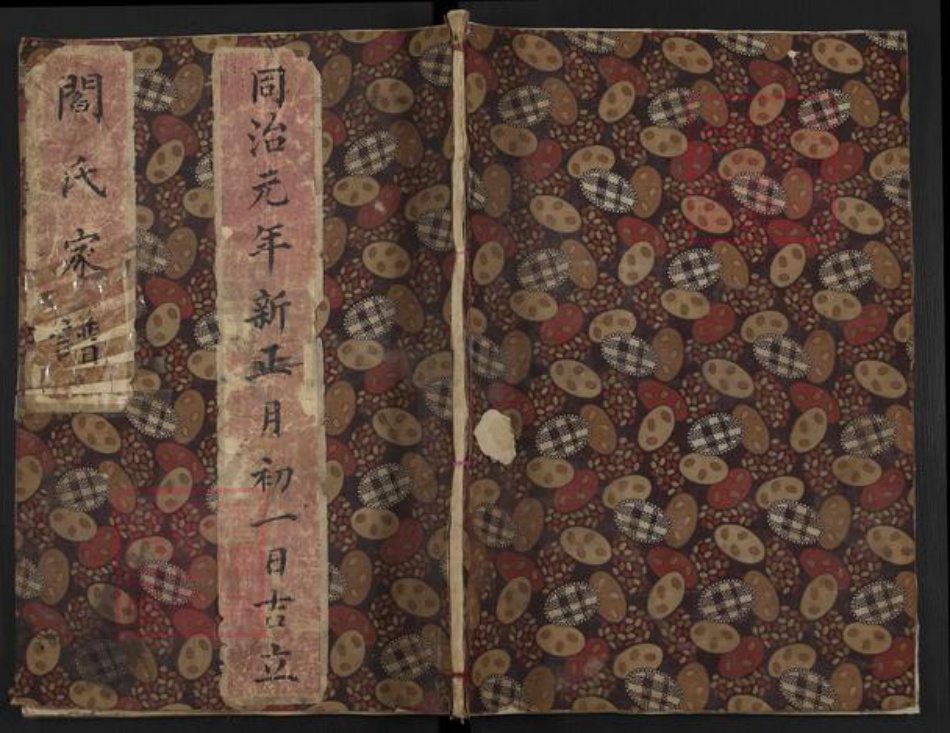 同治元年新正月初一日吉立
閻氏家譜